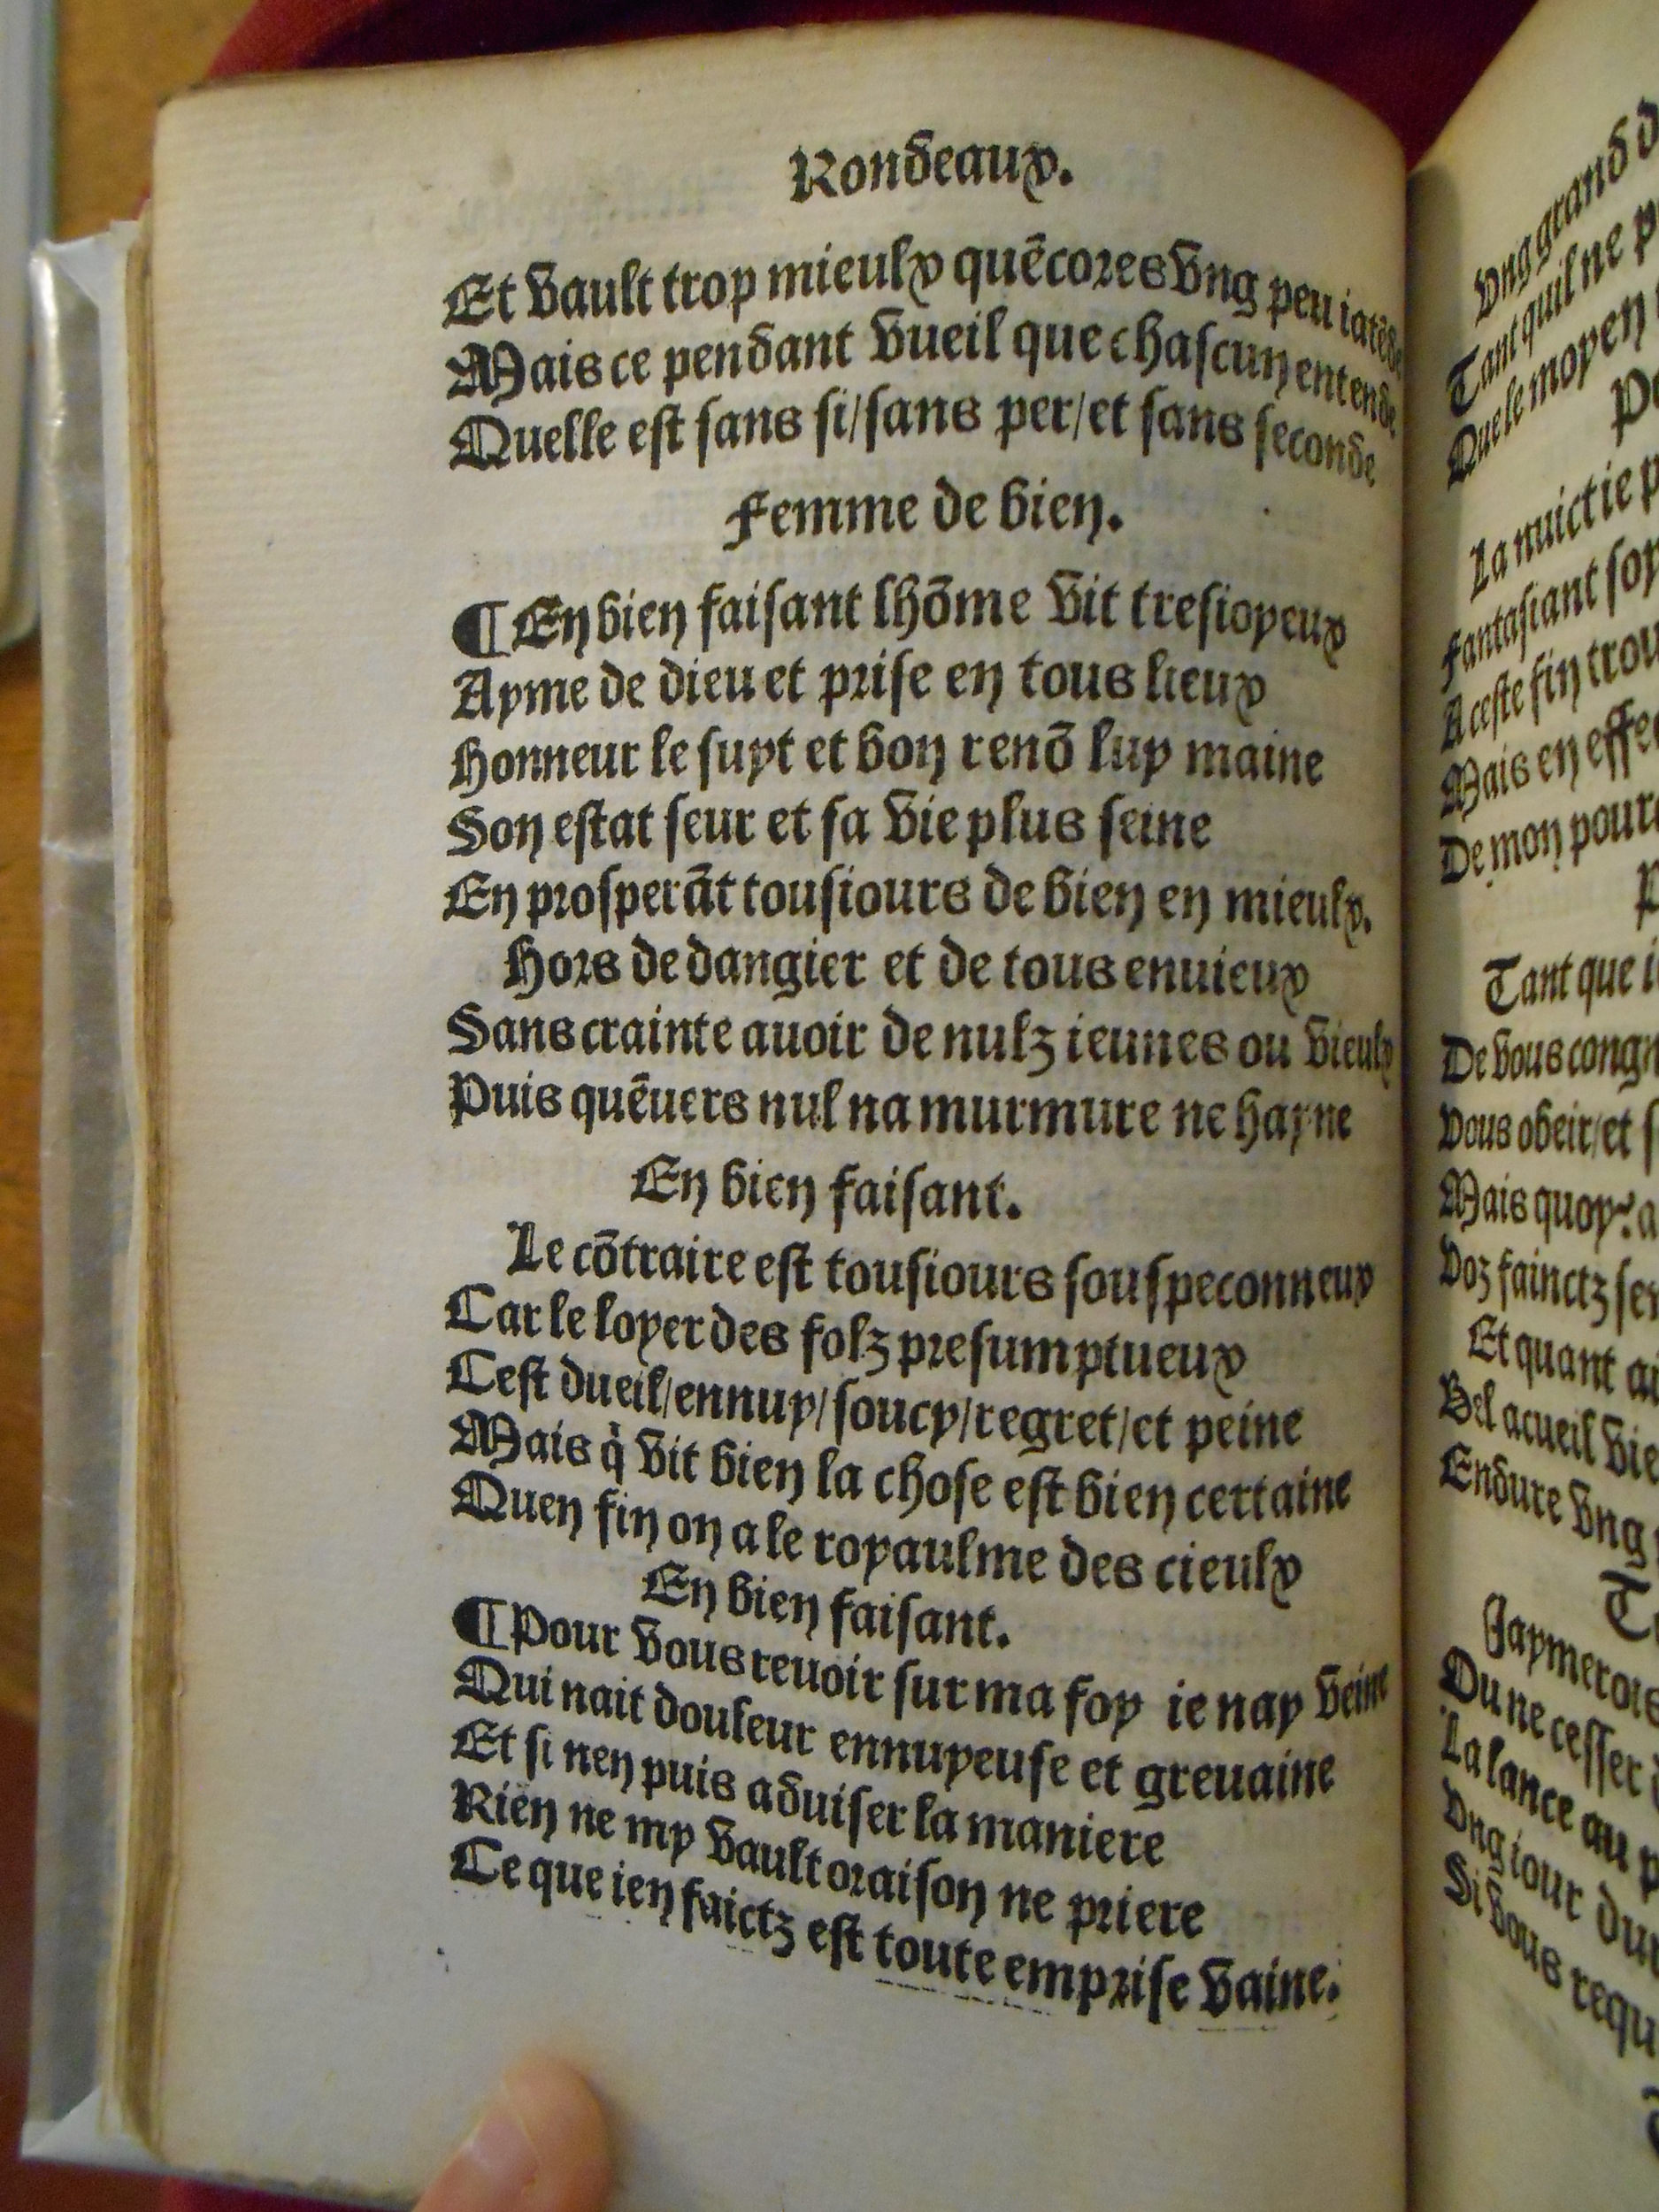 Rondeaux.
Et vault trop mieulx quẽcores vng peu iatẽde
Mais ce pendant vueil que chascun entende
Quelle est sans si/sans per/et sans seconde
Femme de bien.
¶En bien faisant lhõme vit tresioyeux
Ayme de dieu et prise en tous lieux
Honneur le suyt et bon renõ luy maine
Son estat seur et sa vie plus seine
En prosperãt tousiours de bien en mieulx.
Hors de dangier et de tous enuieux
Sans crainte auoir de nulz ieunes ou vieulx
Puis quẽuers nul na murmure ne hayne
En bien faisant.
Le cõtraire est tousiours souspeconneux
Car le loyer des folz presumptueux
Cest dueil/ennuy/soucy/regret/et peine
Mais q̇ vit bien la chose est bien certaine
Quen fin on a le royaulme des cieulx
En bien faisant.
¶Pour vous reuoir sur ma foy ie nay veine
Qui nait douleur ennuyeuse et greuaine
Et si nen puis aduiser la maniere
Rien ne my vault oraison ne priere
Ce que ien faictz est toute emprise vaine.
Vng grand
Tant quil ne
Que le moyen
La nuict ie
Fantasiant
A ceste fin
Mais en
De mon
Tant que
De vous
Vous obeir/et
Mais quoy?
Voz fainctz
Et quant
Bel acueil
Endure vng
Iaymerois
Ou ne cesser
La lance au
Vng iour
Si vous